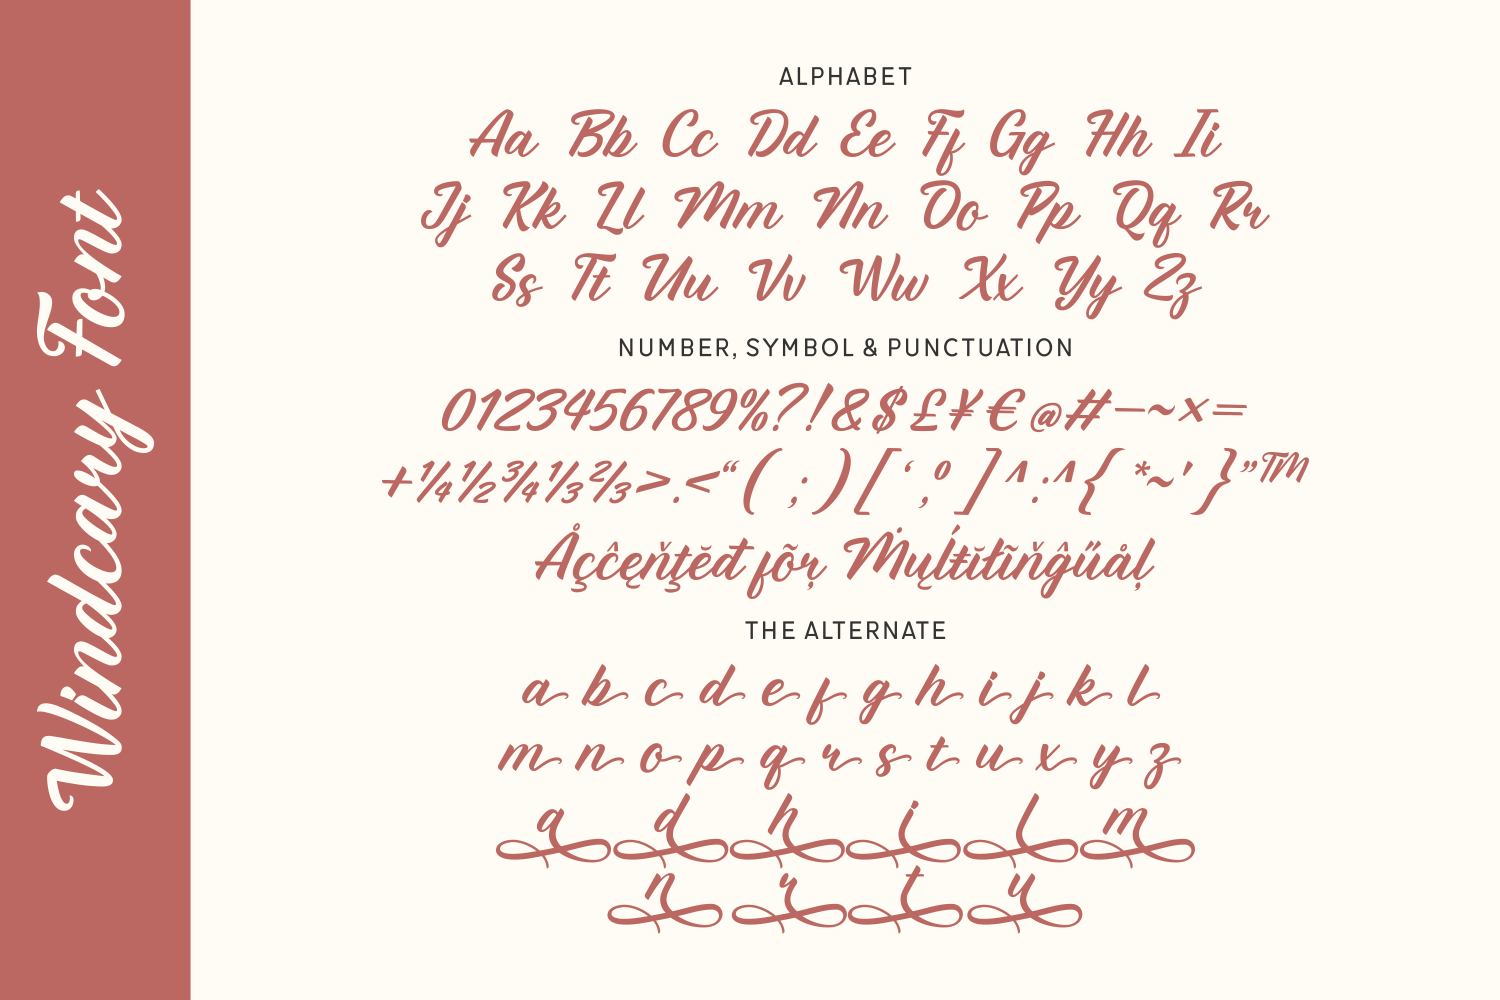 Windcary Font
ALPHABET
Aa Bb Cc Dd Ee Ff Gg Hh Ii
Jj Kk Ll Mm Nn Oo Pp Qq Rr
Ss Tt Uu Vv Ww Xx Yy Zz
NUMBER, SYMBOL & PUNCTUATION
0123456789%?!&$£¥€@#—~×=
+¼½¾⅓⅔>.<“(;)[‘,º]^:^{*~'}”™
Åçĉęňţĕđ fõŗ Ṁųĺŧĭłĩňĝűåļ
THE ALTERNATE
a b c d e f g h i j k l
m n o p q r s t u x y z
a d h i l m
n r t u